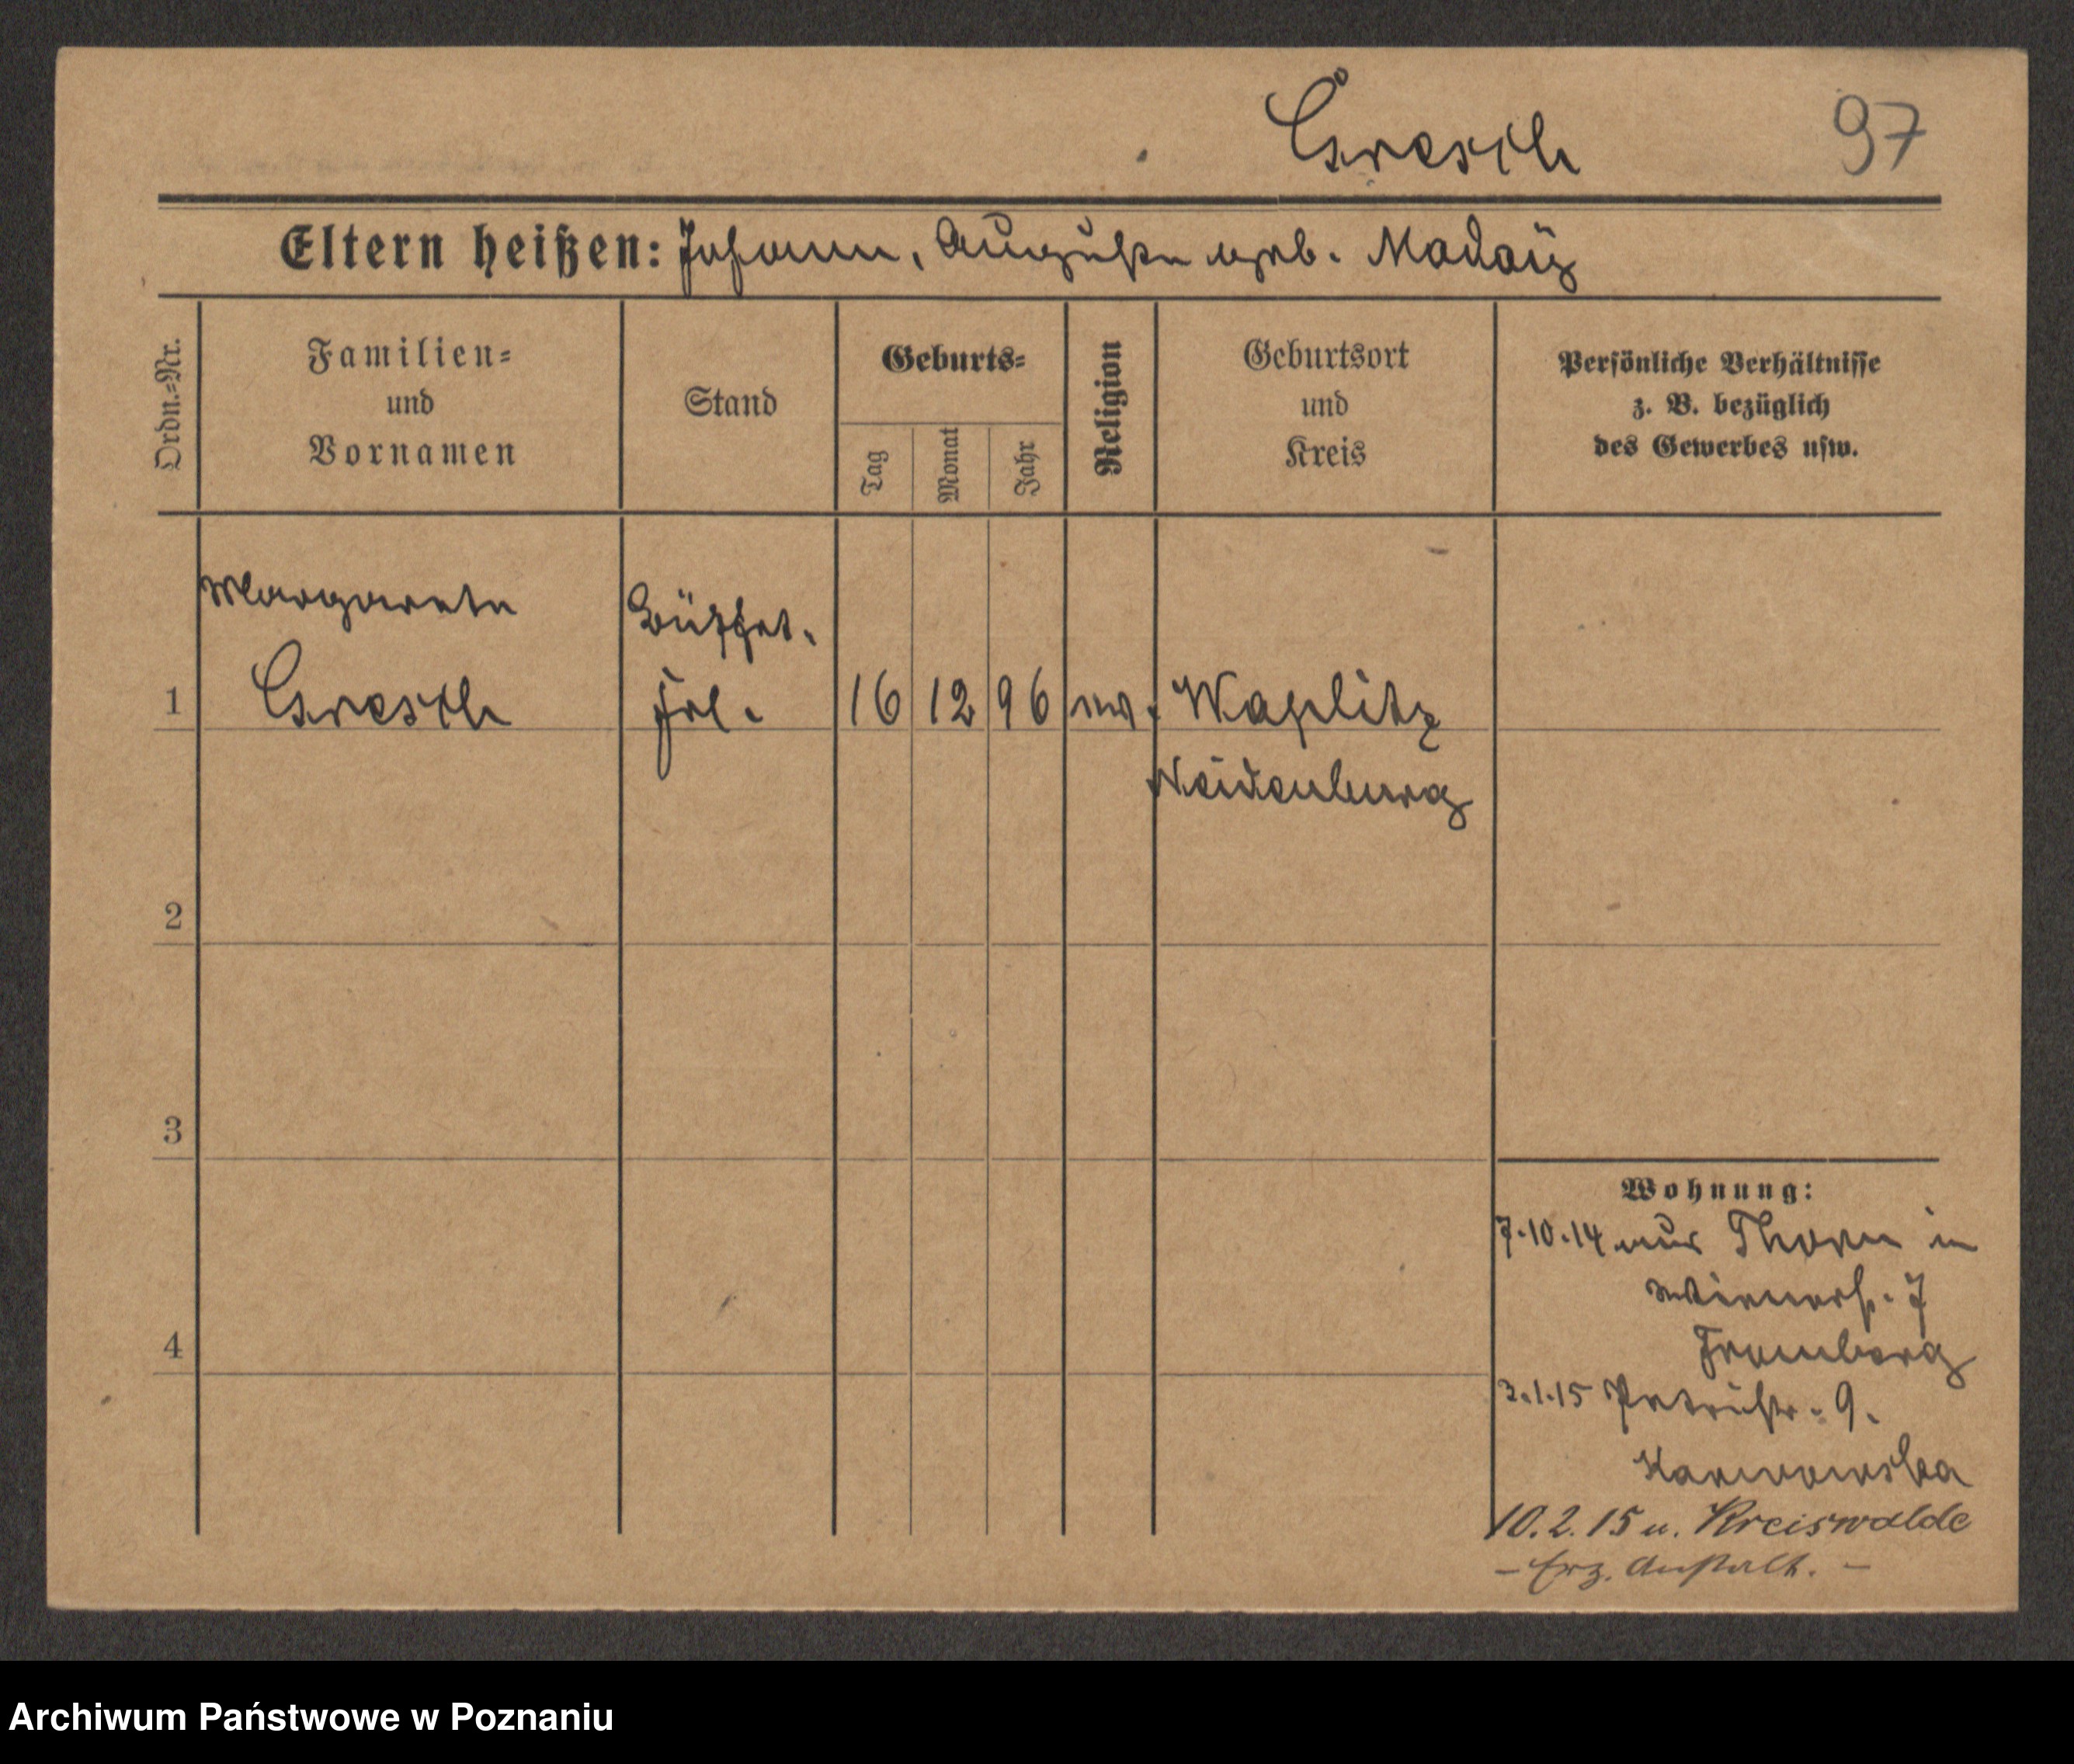 Gresch 97
Eltern heißen: Johann, Auguste geb. Maday
Ordn.-Nr.
Familien-
und
Vornamen
Stand
Geburts-
Tag
Monat
Jahr
Religion
Geburtsort
und
Kreis
Persönliche Verhältnisse
z. B. bezüglich
des Gewerbes usw.
Margarete Büffet.
1 Gresch frl. 16 12 96 ev. Waplitz
Neidenburg
2
3
4
Wohnung:
7.10.14 aus Thorn in
7
Fromberg
2.1.15 Petristr. 9.
Karwowska
10.2.15 u. Kreiswalde
- Erz. Anstalt. -
Archiwum Państwowe w Poznaniu